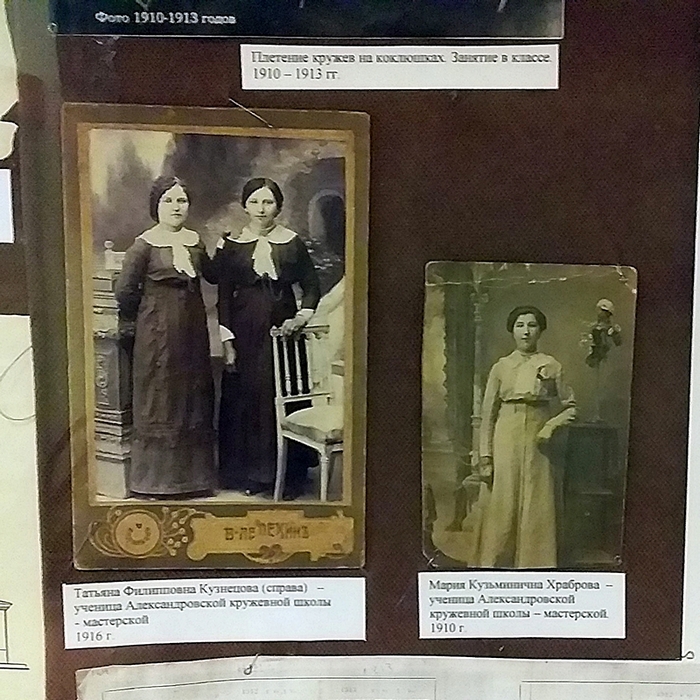 Фото 1910-1913 годов
Плетение кружев на коклюшках. Занятие в классе.
1910 – 1913 гг.
Татьяна Филипповна Кузнецова (справа) –
ученица Александровской кружевной школы
- мастерской
1916 г.
Мария Кузьминична Храброва –
ученица Александровской
кружевной школы – мастерской.
1910 г.